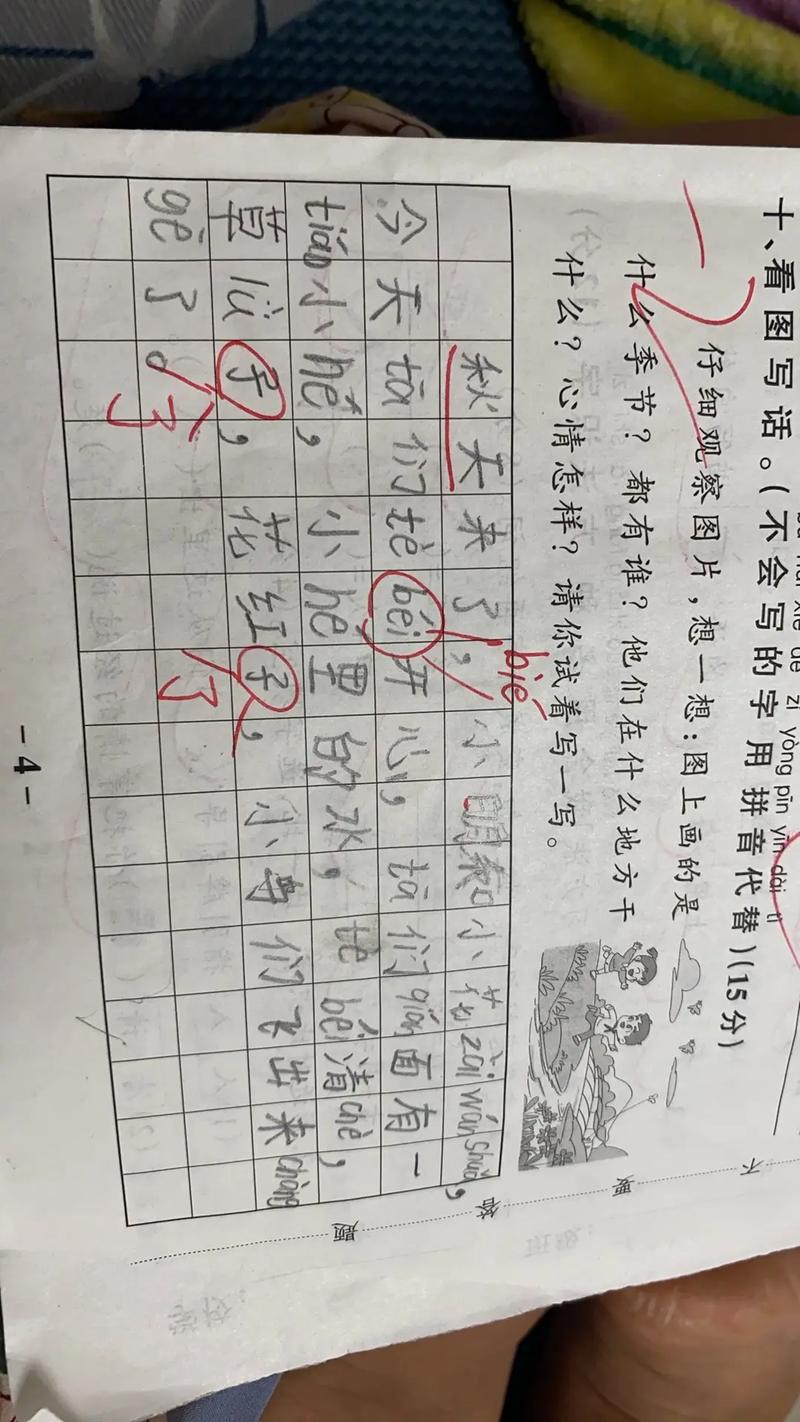 zì yòng pīn yīn dài tì
十、看图写话。(不会写的字用拼音代替)(15分)
仔细观察图片，想一想：图上画的是
什么季节？都有谁？他们在什么地方干
什么？心情怎样？请你试着写一写。
秋天来了，小明和小花zài wán shuǎ，
bié
今天tā们tè béi开心，tā们qián面有一
tiáo小hé，小hé里的水，tè béi清chè，
草lǜ子，花红子，小鸟们飞出来chàng
了 了
gē了。
答
要
不
题
- 4 -